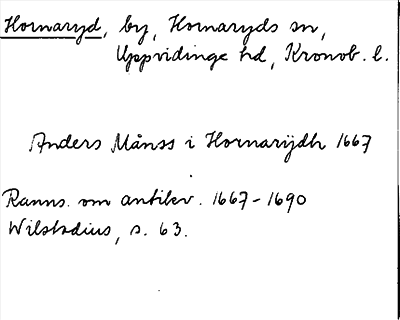 Hornaryd, by, Hornaryds sn,
Uppvidinge hd, Kronob. l.
Anders Månss i Hornarÿdh 1667
Ranns. om antikv. 1667-1690
Wilstadius, s. 63.